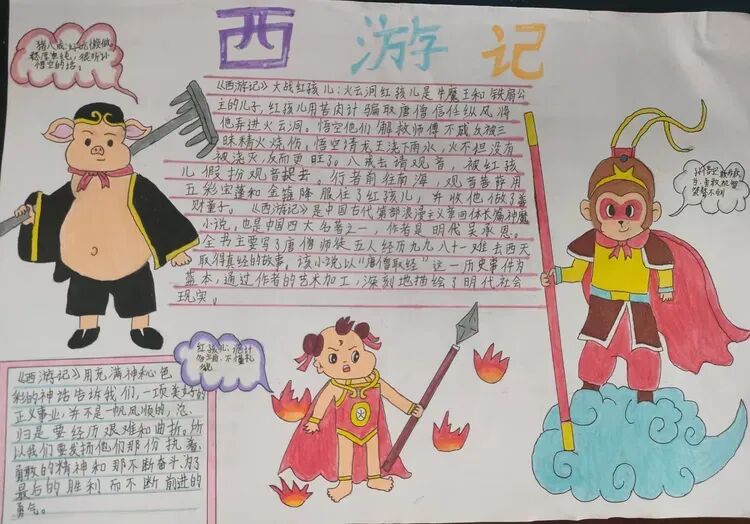 西游记
猪八戒:好吃懒做
憨厚单纯,很听孙
悟空的话。
《西游记》大战红孩儿:火云洞红孩儿是牛魔王和铁扇公
主的儿子,红孩儿用苦肉计骗取唐僧信任纵风将
他弄进火云洞。悟空他们解救师傅不成反被三
昧精火烧伤。悟空请龙王浇下雨水,火不担没有
被浇灭,反而更旺了。八戒去请观音,被红孩
儿假扮观音捉去。行者前往南海,观音菩萨用
五彩宝莲和金箍降服住了红孩儿,并收他做了善
财童子。《西游记》是中国古代第一部浪漫主义章回体长篇神魔
小说,也是中国四大名著之一,作者是明代吴承恩。
全书主要写了唐僧师徒五人经历九九八十一难去西天
取得真经的故事,该小说以“唐僧取经”这一历史事件为
蓝本,通过作者的艺术加工,深刻地描绘了明代社会
现实。
孙悟空
红孩儿:诡计
不懂礼
貌
《西游记》用充满神秘色
彩的神话告诉我们,一项美好的
正义事业,并不是一帆风顺的,总
归是要经历艰难和曲折。所
以我们要发扬他们那份执着、
勇敢的精神和那不断奋斗,为了
最后的胜利而不断前进的
勇气。